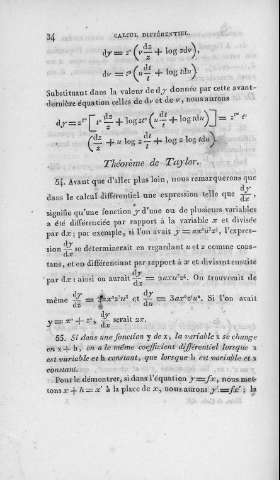 34 CALCUL DIFFÉRENTIEL.
dy = zᵛ (v dz/z + log zdv),
dv = tᵘ (u dt/t + log tdu)
Substituant dans la valeur de dy donnée par cette avant-
dernière équation celles de dv et de v, nous aurons
Théorème de Taylor.
54. Avant que d'aller plus loin, nous remarquerons que
dans le calcul différentiel une expression telle que dy/dx,
signifie qu'une fonction y d'une ou de plusieurs variables
a été différenciée par rapport à la variable x et divisée
par dx; par exemple, si l'on avait y = ax³u²z⁴, l'expres-
sion dy/dx se déterminerait en regardant u et z comme cons-
tans, et en différentiant par rapport à x et divisant ensuite
par dx : ainsi on aurait dy/dx = On trouverait de
même Si l'on avait
y = x² + z², dy/dx serait 2x.
55. Si dans une fonction y de x, la variable x se change
en x + h, on a le même coefficient différentiel lorsque x
est variable et h constant, que lorsque h est variable et x
constant.
Pour le démontrer, si dans l'équation y = fx, nous met-
tons x + h = x′ à la place de x, nous aurons y′ = fx′; la